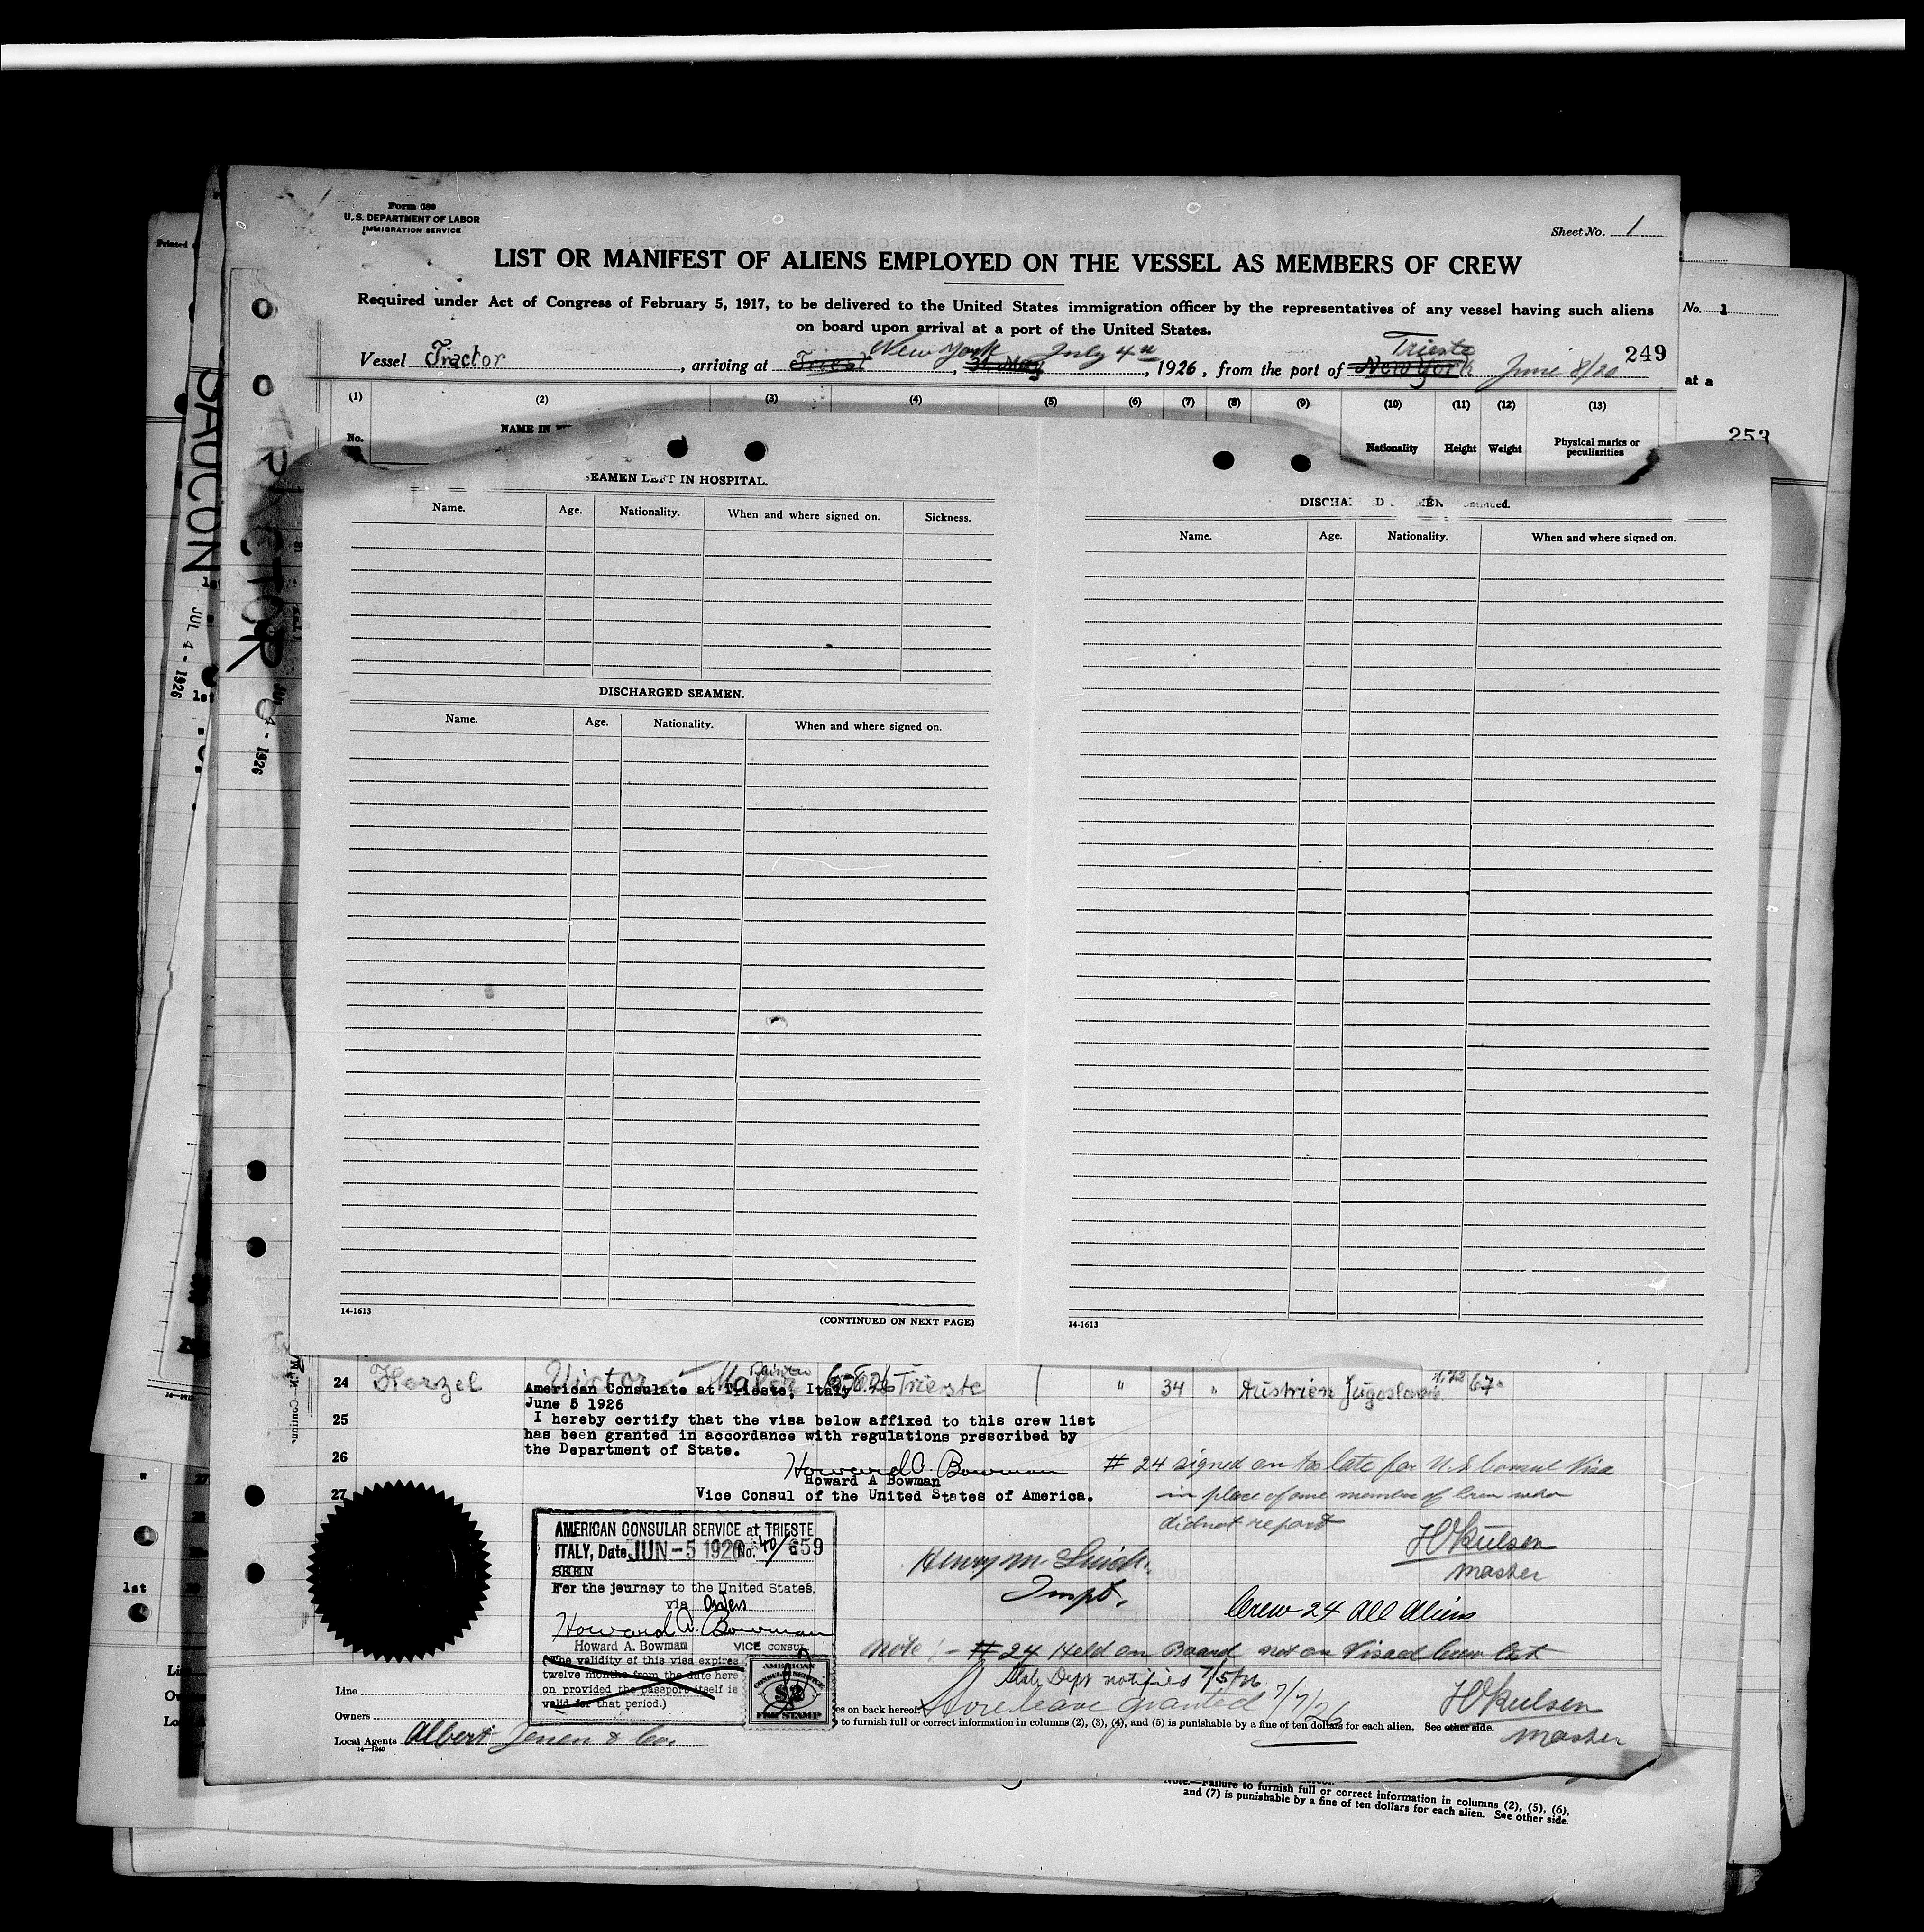 Form 689
U. S. DEPARTMENT OF LABOR
IMMIGRATION SERVICE
Sheet No. 1
LIST OR MANIFEST OF ALIENS EMPLOYED ON THE VESSEL AS MEMBERS OF CREW
Required under Act of Congress of February 5, 1917, to be delivered to the United States immigration officer by the representatives of any vessel having such aliens
on board upon arrival at a port of the United States.
New York July 4th Trieste
Vessel Tractor, arriving at Triest, 31 May, 1926, from the port of New York June 8/20
249
No. 1
at a
253
Printed
SAUCON
JUL 4 - 1926
1st
1st
TRACTOR
4 - 1926
(1) (2) (3) (4) (5) (6) (7) (8) (9) (10) (11) (12) (13)
No. NAME IN Nationality Height Weight Physical marks or
peculiarities
SEAMEN LEFT IN HOSPITAL.
Name. Age. Nationality. When and where signed on. Sickness.
DISCHARGED SEAMEN.
Name. Age. Nationality. When and where signed on.
14-1613
(CONTINUED ON NEXT PAGE)
Name. Age. Nationality. When and where signed on.
14-1613
24 Herzel Victor Trieste " 34 " Austrien Jugoslavic 67
American Consulate at Trieste, Italy
June 5 1926
25 I hereby certify that the visa below affixed to this crew list
has been granted in accordance with regulations prescribed by
the Department of State.
26 Howard A. Bowman
Howard A Bowman
27 Vice Consul of the United States of America.
# 24 signed on too late for U.S. Consul Visa
in place of one member of Crew who
did not report
master
AMERICAN CONSULAR SERVICE at TRIESTE
ITALY, Date JUN - 5 1926 No. 40/659
SEEN
For the journey to the United States.
via
Howard A. Bowman
Howard A. Bowman VICE CONSUL
(The validity of this visa expires
twelve months from the date here
on provided the passport itself is
valid for that period.)
AMERICAN
CONSULAR SERVICE
$2
FEE STAMP
Henry M.
Inspt.
Crew 24 All Aliens
Note :- # 24 Held on Board not on Visaed Crew list
Dept notified 7/5/26
Shore leave granted 7/7/26
master
1st
Line
Owners
Local Agents Albert Jensen & Co.
14-1240
es on back hereof.
to furnish full or correct information in columns (2), (3), (4), and (5) is punishable by a fine of ten dollars for each alien. See other side.
Note.—Failure to furnish full or correct information in columns (2), (5), (6),
and (7) is punishable by a fine of ten dollars for each alien. See other side.